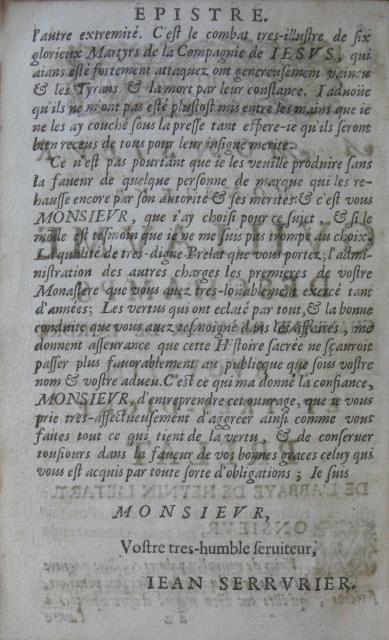 EPISTRE.
l'autre extremité. C'est le combat tres-illustre de six
glorieux Martyrs de la Compagnie de IESVS, qui
aians esté fortement attaquez ont genereusement vaincu
& les Tyrans & la mort par leur constance. I'aduoüe
qu'ils ne m'ont pas esté plustost mis entre les mains que ie
ne les ay couché sous la presse tant espere-ie qu'ils seront
bien receus de tous pour leur insigne merite.
Ce n'est pas pourtant que ie les veuille produire sans
la faueur de quelque personne de marque qui les re-
hausse encore par son autorité & ses merites: & c'est vous
MONSIEVR, que i'ay choisi pour ce sujet, & si le
mõde est tesmoin que ie ne me suis pas trompé au choix.
La qualité de tres-digne Prelat que vous portez; l'admi-
nistration des autres charges les premieres de vostre
Monastere que vous auez tres-loüablement exercé tant
d'années; Les vertus qui ont eclaté par tout, & la bonne
conduite que vous auez tesmoigné dans les affaires, me
donnent asseurance que cette Histoire sacrée ne sçauroit
passer plus fauorablement au publicque que sous vostre
nom & vostre adueu. C'est ce qui ma donné la confiance,
MONSIEVR, d'entreprendre cet ouurage, que ie vous
prie tres-affectueusement d'aggreer ainsi comme vous
faites tout ce qui tient de la vertu, & de conseruer
tousiours dans la faueur de vos bonnes graces celuy qui
vous est acquis par toute sorte d'obligations; Ie suis
MONSIEVR,
Vostre tres-humble seruiteur,
IEAN SERRVRIER.